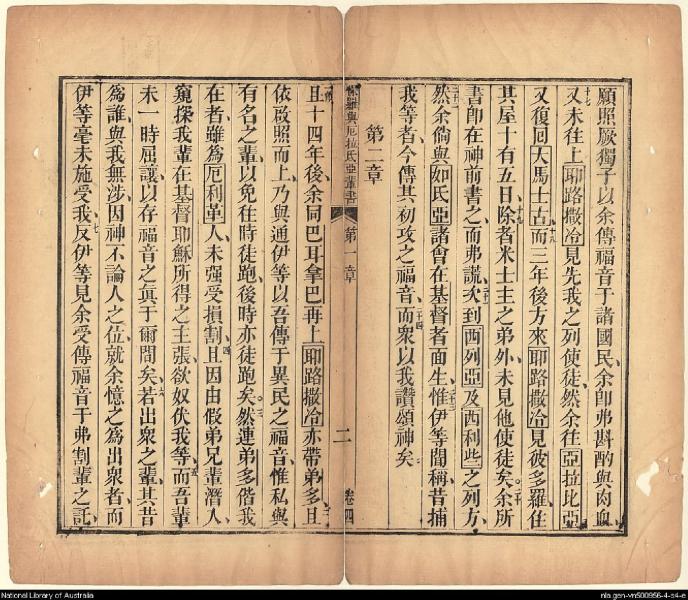 願照厥獨子以余傳福音于諸國民余即弗斟酌與肉血
十七又未往上耶路撒冷見先我之列使徒然余往亞拉比亞
又復回大馬士古十八而三年後方來耶路撒冷見彼多羅住
其屋十有五日十九除者米士主之弟外未見他使徒矣二十余所
書即在神前書之而弗謊矣二十一到西列亞及西利些之列方
二十二然余倘與如氏亞諸會在基督者面生二十三惟伊等聞稱昔捕
我等者今傳其初攻之福音二十四而衆以我讚頌神矣
第二章
保羅與厄拉氏亞輩書
第一章
二
卷四
且十四年後余同巴耳拿巴再上耶路撒冷亦帶弟多二且
依啟照而上乃與通伊等以吾傳于異民之福音惟私與
有名之輩以免往時徒跑後時亦徒跑矣三然連弟多偕我
在者雖爲厄利革人未强受損割四且因由假弟兄輩潛入
窺探我輩在基督耶穌所得之主張欲奴伏我等五而吾輩
未一時屈讓以存福音之眞于爾間矣六若出衆之輩其昔
爲誰與我無涉因神不論人之位就余憶之爲出衆者而
伊等毫未施受我七反伊等見余受傳福音于弗割輩之託
National Library of Australia
nla.gen-vn500956-4-s4-e